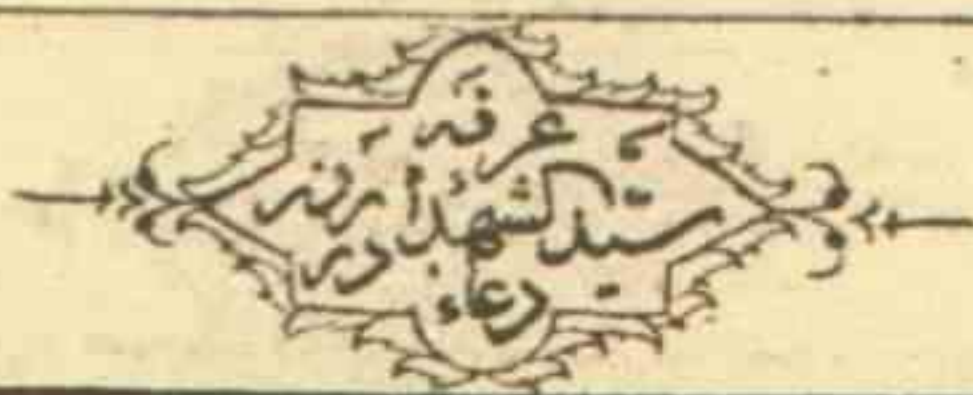 دعاء
سیّد الشهداء در روز
عرفه